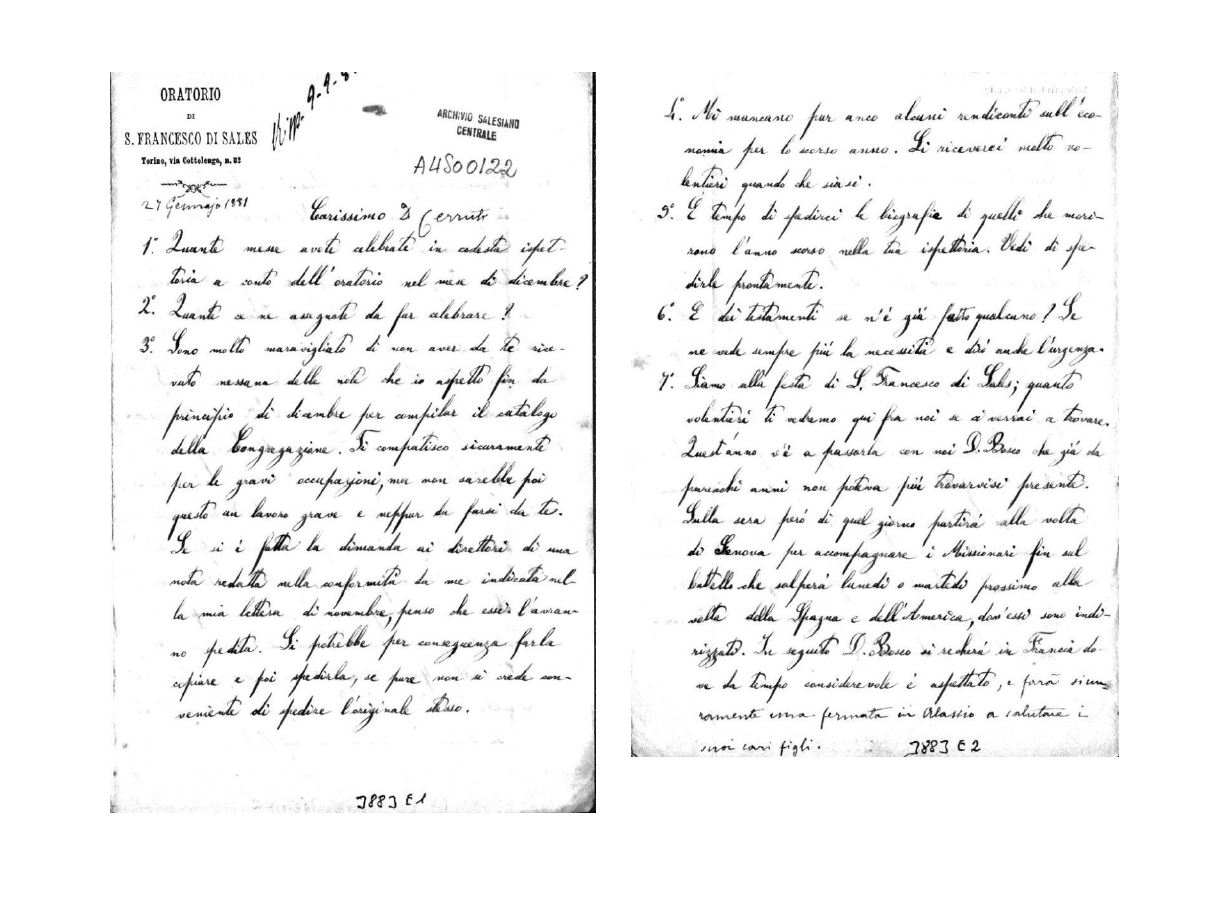 ORATORIO
DI
S. FRANCESCO DI SALES
Torino, via Cottolengo, n. 32
9-9-8
ARCHIVIO SALESIANO
CENTRALE
A4500122
27 Gennajo 1881
Carissimo D Cerruti
1º. Quante messe avete celebrate in codesta ispet-
toria a conto dell'oratorio nel mese di dicembre?
2º. Quante ce ne assegnate da far celebrare?
3º. Sono molto maravigliato di non aver da te rice-
vuto nessuna delle note che io aspetto fin da
principio di dicembre per compilar il catalogo
della Congregazione. Ti compatisco sicuramente
per le gravi occupazioni, ma non sarebbe poi
questo un lavoro grave e neppur da farsi da te.
Se si è fatta la dimanda ai direttori di una
nota redatta nella conformità da me indicata nel-
la mia lettera di novembre, penso che essi l'avran-
no spedita. Si potrebbe per conseguenza farla
copiare e poi spedirla, se pure non si crede con-
veniente di spedire l'originale stesso.
3883 E 1
4º. Mi mancano pur anco alcuni rendiconti sull'eco-
nomia per lo scorso anno. Li riceverei molto vo-
lentieri quando che siasi.
5º. È tempo di spedirci le biografie di quelli che mori-
rono l'anno scorso nella tua ispettoria. Vedi di spe-
dirle prontamente.
6º. E dei testamenti se n'è già fatto qualcuno? Se
ne vede sempre più la necessità e dirò anche l'urgenza.
7º. Siamo alla festa di S. Francesco di Sales; quanto
volentieri ti vedremo qui fra noi se ci verrai a trovare.
Quest'anno v'è a passarla con noi D. Bosco che già da
parecchi anni non poteva più trovarvisi presente.
Sulla sera però di quel giorno partirà alla volta
di Genova per accompagnare i Missionari fin sul
battello che salperà lunedì o martedì prossimo alla
volta della Spagna e dell'America, dov'essi sono indi-
rizzati. In seguito D. Bosco si recherà in Francia do-
ve da tempo considerevole è aspettato, e farà sicu-
ramente una fermata in Alassio a salutare i
suoi cari figli.
3883 E 2